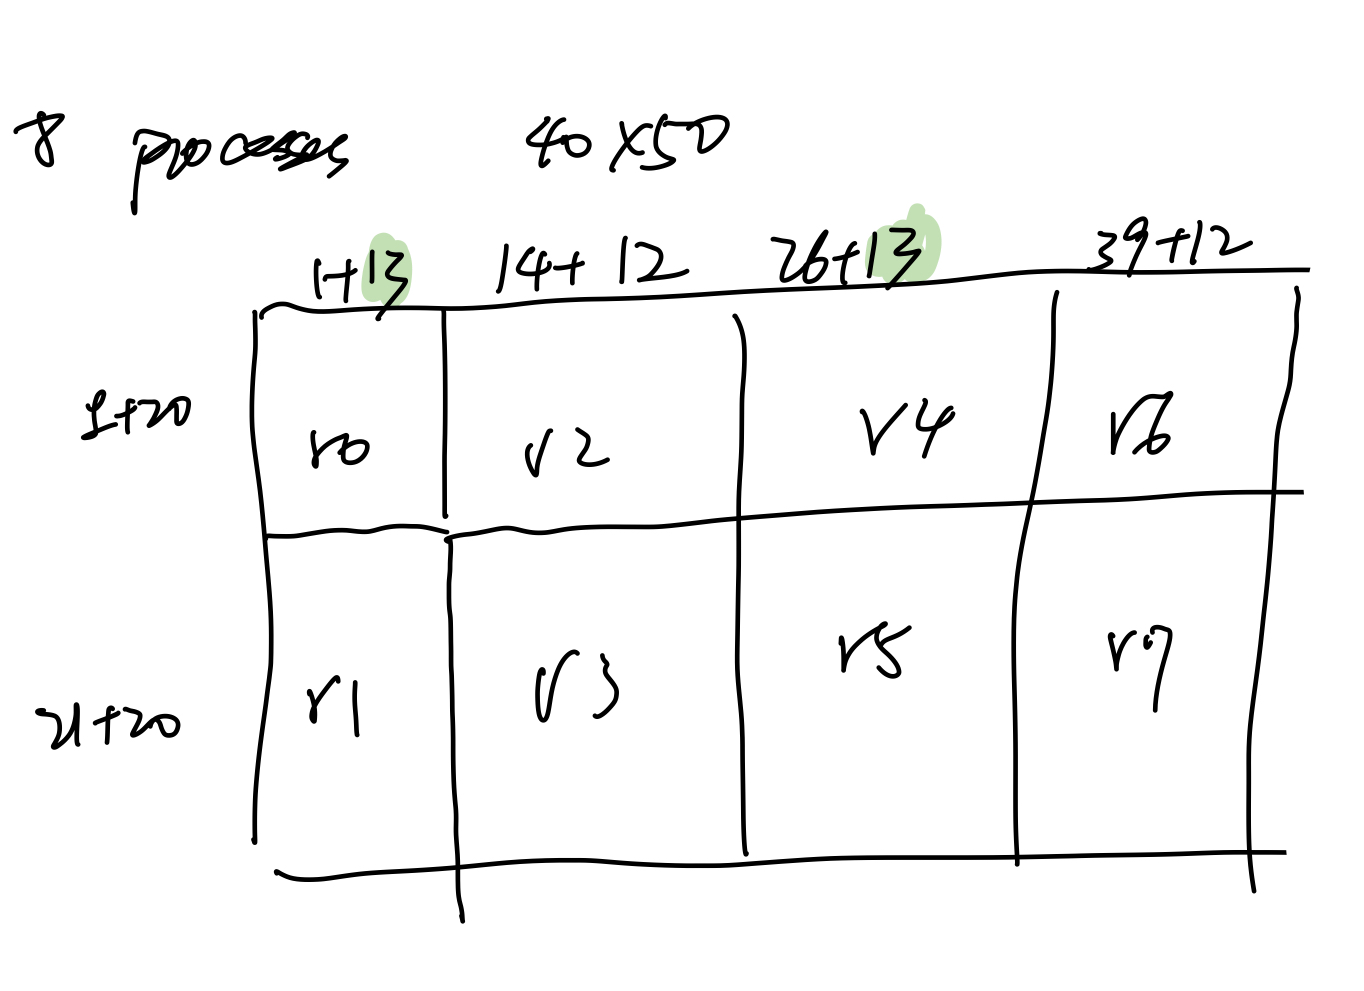 8 processes 40x50
1+13 14+12 26+13 39+12
1+20 r0 r2 r4 r6
21+20 r1 r3 r5 r7